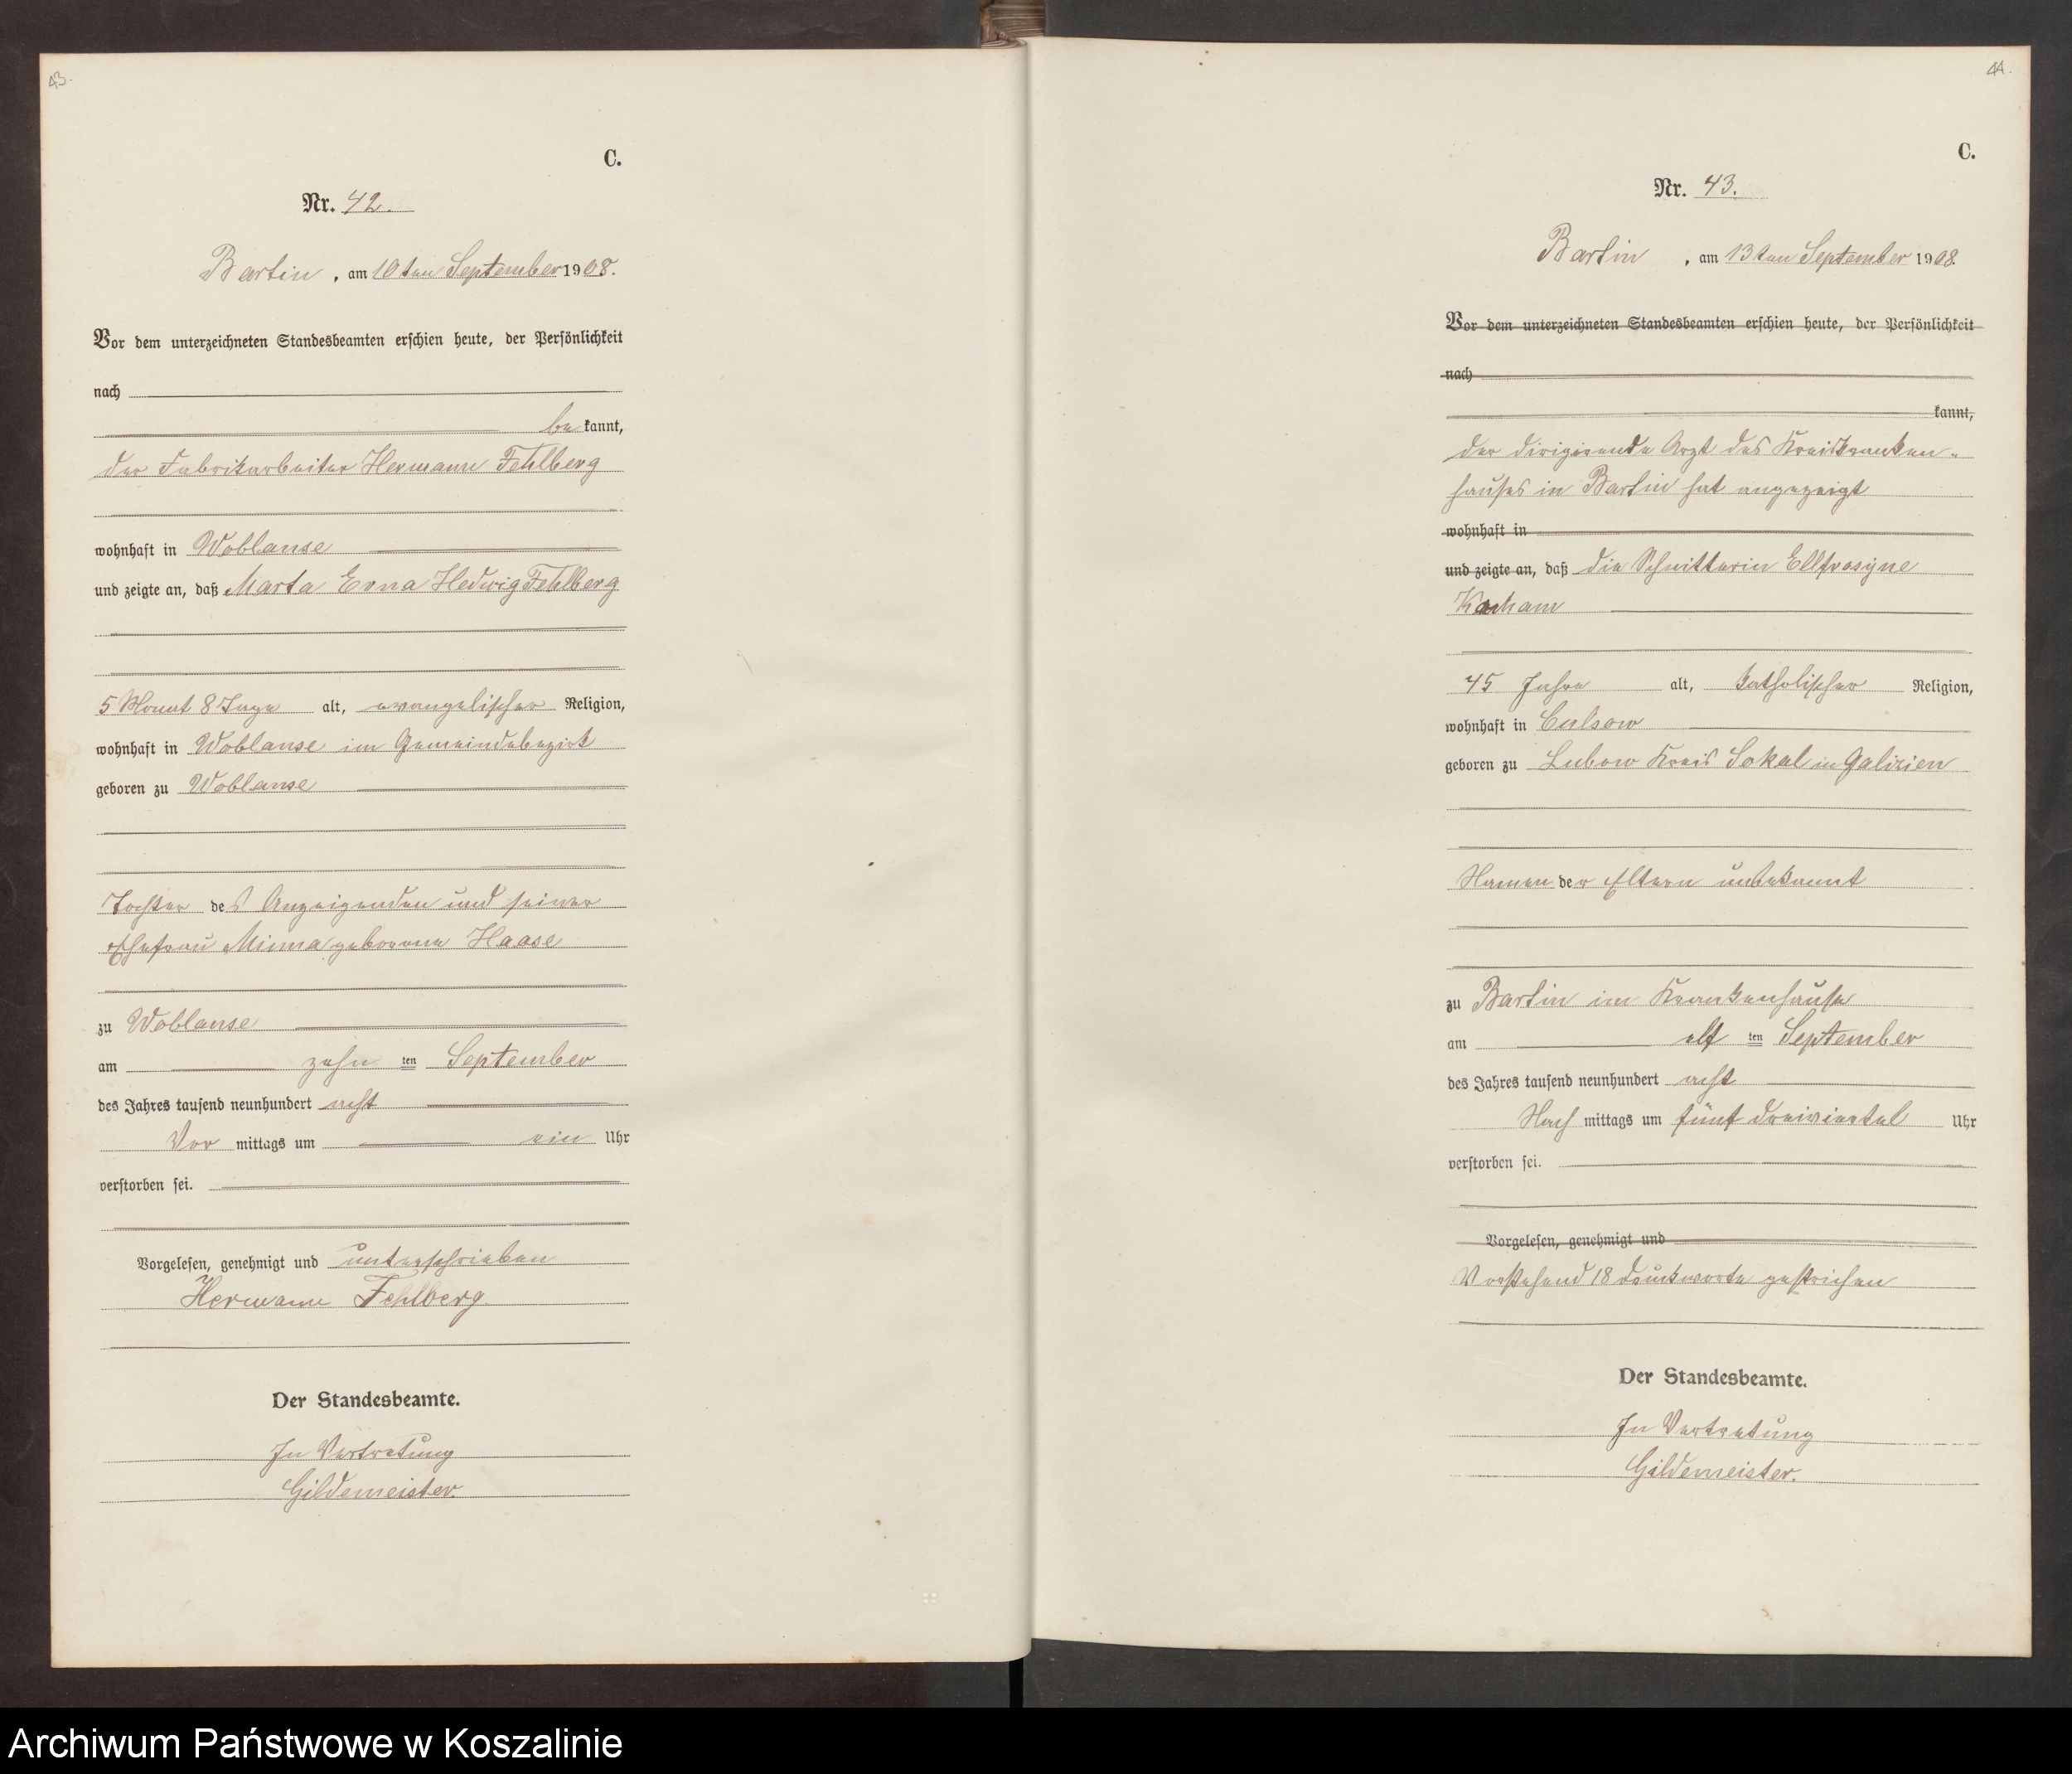 43.
C.
Nr. 42.
Bartin, am 10ten September 1908.
Vor dem unterzeichneten Standesbeamten erschien heute, der Persönlichkeit
nach
be kannt,
der Fabrikarbeiter Hermann Fehlberg
wohnhaft in Woblanse
und zeigte an, daß Marta Erna Hedwig Fehlberg
5 Monat 8 Tage alt, evangelischer Religion,
wohnhaft in Woblanse im Gemeindebezirk
geboren zu Woblanse
Tochter des Anzeigenden und seiner
Ehefrau Minna geborene Haase
zu Woblanse
am zehn ten September
des Jahres tausend neunhundert acht
Vor mittags um ein Uhr
verstorben sei.
Vorgelesen, genehmigt und unterschrieben
Hermann Fehlberg
Der Standesbeamte.
In Vertretung
Gildemeister.
44.
C.
Nr. 43.
Bartin, am 13ten September 1908.
Vor dem unterzeichneten Standesbeamten erschien heute, der Persönlichkeit
nach
kannt,
der dirigirende Arzt des Kreiskranken-
hauses in Bartin hat angezeigt
wohnhaft in
und zeigte an, daß die Schnitterin
45 Jahre alt, katholischer Religion,
wohnhaft in Culsow
geboren zu Lubow Kreis Sokal in Galizien
Namen der Eltern unbekannt
zu Bartin im Krankenhause
am elf ten September
des Jahres tausend neunhundert acht
Nach mittags um fünf dreiviertel Uhr
verstorben sei.
Vorgelesen, genehmigt und
Vorstehend 18 Druckworte gestrichen
Der Standesbeamte.
In Vertretung
Gildemeister.
Archiwum Państwowe w Koszalinie